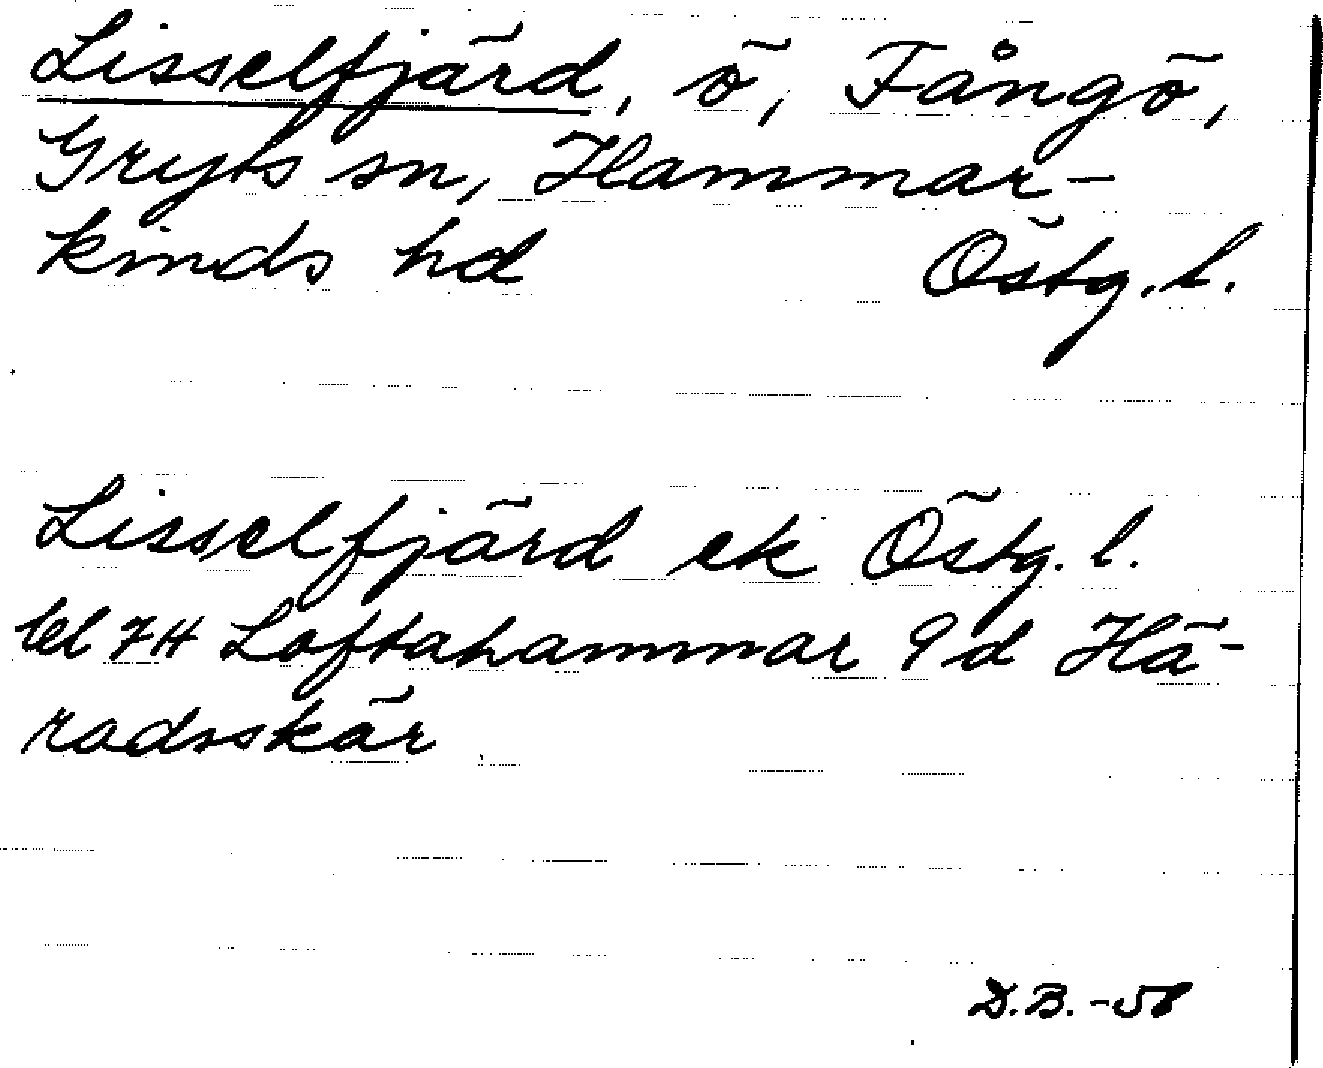 Lisselfjärd, ö, Fångö,
Gryts sn, Hammar-
kinds hd Östg. l.
Lisselfjärd ek Östg. l.
bl 7H Loftahammar 9d Hä-
radsskär
D.B. -58